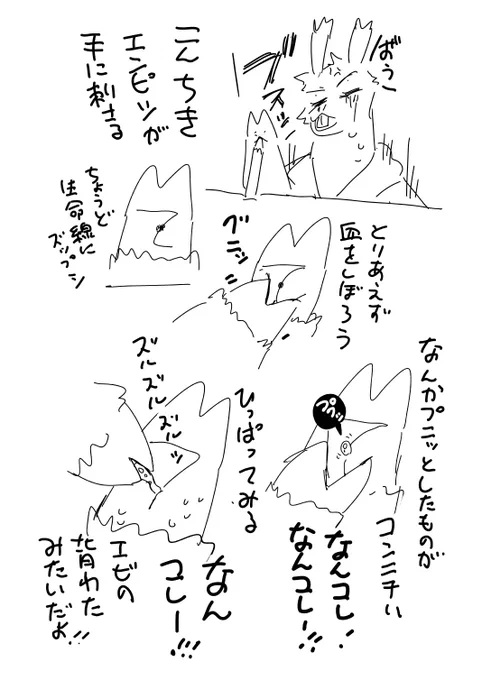 こんちき
エンピツが
手に刺さる
ぎょうっ
ズッ
ちょうど
生命線に
ズップシ
とりあえず
血をしぼろう
グニッ
なんかプニッとしたものが
コンニチハ
プクッ
なんコレ!
なんコレー!!
ひっぱってみる
ズルズルズルッ
なん
コレー!!!
エビの
背わた
みたいだよ!!